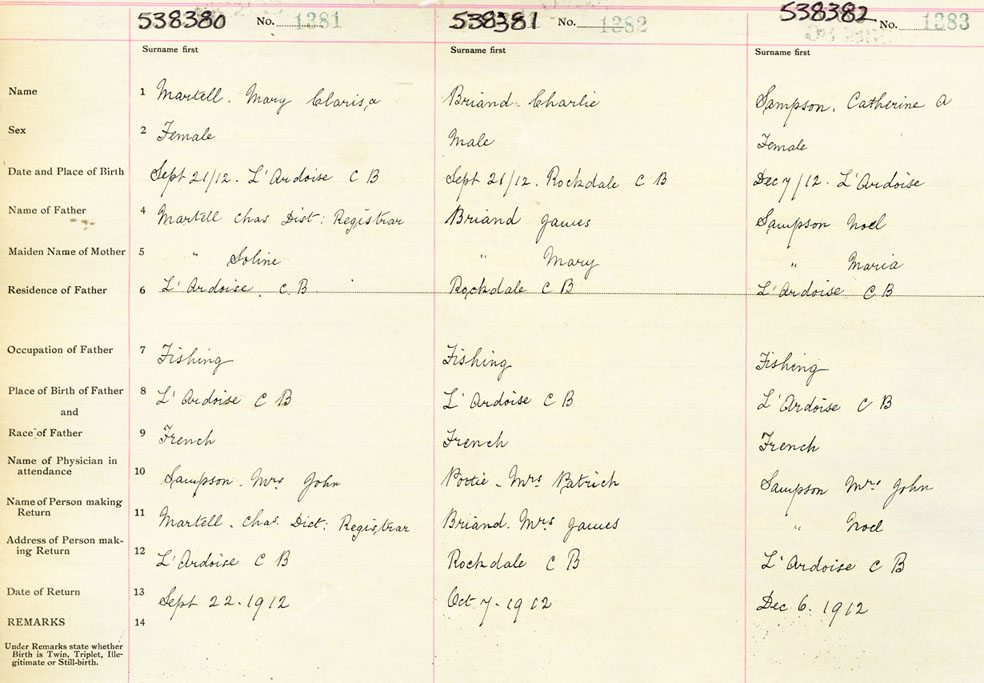 538380 No. 1381 538381 No. 1382 538382 No. 1383
Surname first Surname first Surname first
Name 1 Martell. Mary Clarisa Briand Charlie Sampson. Catherine A
Sex 2 Female Male Female
Date and Place of Birth Sept 21/12. L'Ardoise C B Sept 26/12. Rockdale C B Dec 7/12. L'Ardoise
Name of Father 4 Martell Chas Dist: Registrar Briand James Sampson Noel
Maiden Name of Mother 5 " Soline " Mary " Maria
Residence of Father 6 L'Ardoise. C.B. Rockdale C B L'Ardoise C B
Occupation of Father 7 Fishing Fishing Fishing
Place of Birth of Father 8 L'Ardoise C B L'Ardoise C B L'Ardoise C B
and
Race of Father 9 French French French
Name of Physician in
attendance 10 Sampson. Mrs John Pottie. Mrs Patrick Sampson Mrs John
Name of Person making
Return 11 Martell. Chas. Dict: Registrar Briand. Mrs James " Noel
Address of Person mak-
ing Return 12 L'Ardoise C B Rockdale C B L'Ardoise C B
Date of Return 13 Sept 22.1912 Oct 7.1912 Dec 6.1912
REMARKS 14
Under Remarks state whether
Birth is Twin, Triplet, Ille-
gitimate or Still-birth.